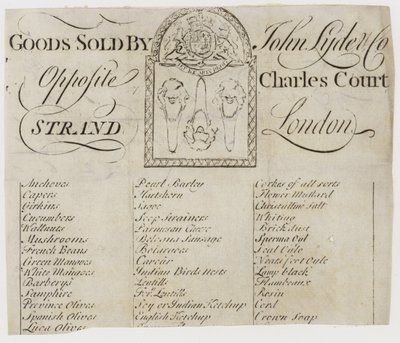 GOODS SOLD BY
John Lyde & Co
Opposite
Charles Court
STRAND
London
Anchoves
Capers
Girkins
Cucumbers
Wallnuts
Mushrooms
French Beans
Green Mangoes
White Mangoes
Barberys
Samphire
Province Olives
Spanish Olives
Luca Olives
Pearl Barley
Hartshorn
Sago
Soop Strainers
Parmesan Cheese
Bolognia Sausage
Botargoes
Cavear
Indian Bird Nests
Lentills
For. Lentills
Soy or Indian Ketchup
English Ketchup
Corks of all sorts
Flower Mustard
Christalline Salt
Whiting
Brick dust
Sperma Oyl
Seal Oyle
Neats foot Oyle
Lamp black
Flambeaux
Rosin
Cord
Crown Soap